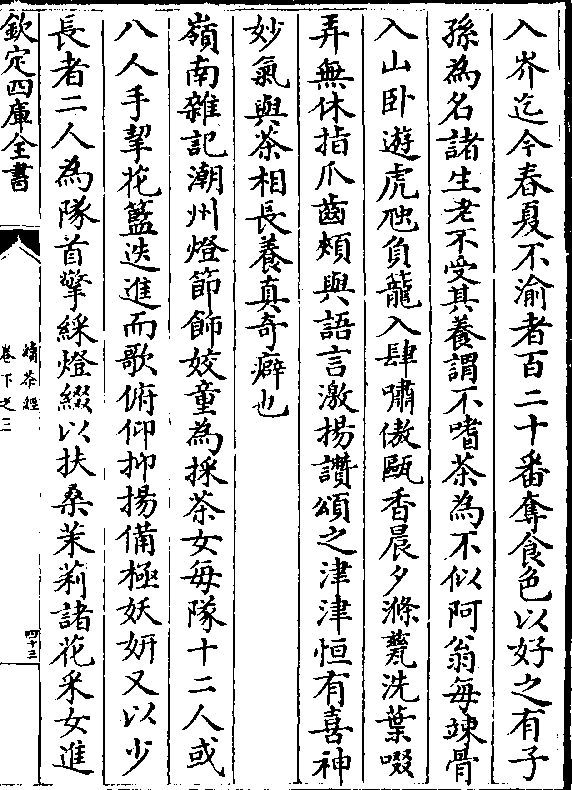 入岕迄今春夏不渝者百二十番奪食色以好之有子
孫為名諸生老不受其養謂不嗜茶為不似阿翁每竦骨
入山卧遊虎虺負籠入肆嘯傲甌香晨夕滌甆洗葉啜
弄無休指爪齒頰與語言激揚讚頌之津津恒有喜神
妙氣與茶相長養真奇癖也
嶺南雜記潮州燈節飾姣童為採茶女每隊十二人或
八人手挈花籃迭進而歌俯仰抑揚備極妖妍又以少
長者二人為隊首擎綵燈綴以扶桑茉莉諸花采女進
欽定四庫全書
續茶經
卷下之三
四十三